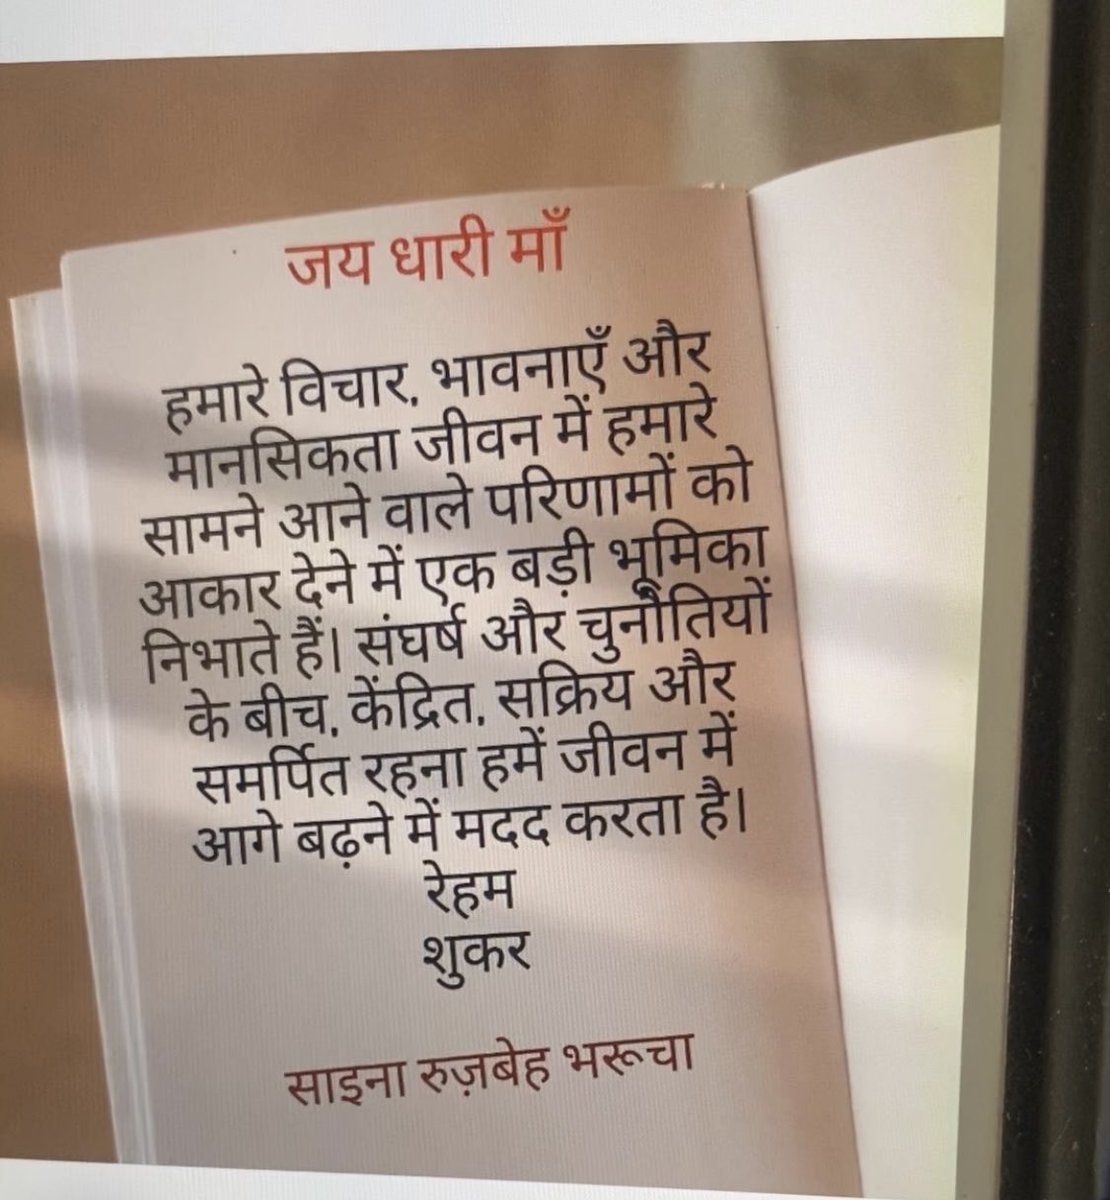 जय धारी माँ
हमारे विचार, भावनाएँ और
मानसिकता जीवन में हमारे
सामने आने वाले परिणामों को
आकार देने में एक बड़ी भूमिका
निभाते हैं। संघर्ष और चुनौतियों
के बीच, केंद्रित, सक्रिय और
समर्पित रहना हमें जीवन में
आगे बढ़ने में मदद करता है।
रेहम
शुकर
साइना रुज़बेह भरूचा